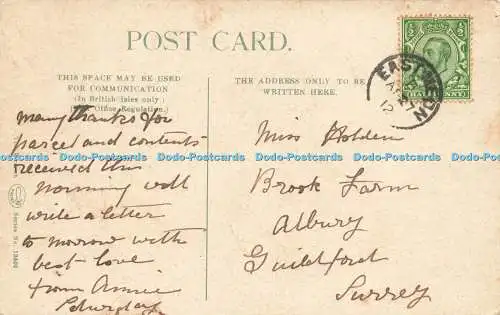 POST CARD.
THIS SPACE MAY BE USED
FOR COMMUNICATION
(In British Isles only
Post Office Regulation.)
THE ADDRESS ONLY TO BE
WRITTEN HERE.
many thanks for
parcel and contents
received this
morning will
write a letter
to morrow with
best love
from Annie
Saturday
Series No.
Miss Holden
Brook Farm
Albury
Guildford
Surrey
EAST
AP 27
12
HALF PENNY
Dodo-Postcards Dodo-Postcards Dodo-Postcards Dodo-Postcards Dodo-Postcards Dodo-Postcards